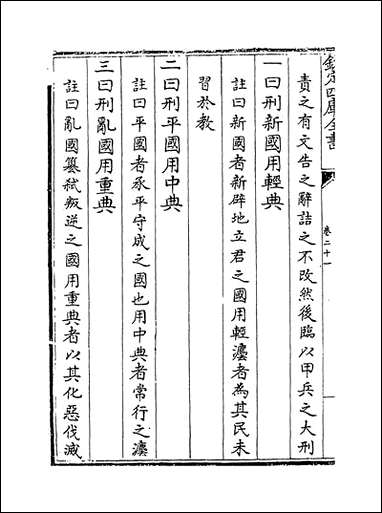 欽定四庫全書
卷二十一
責之有文告之辭詰之不改然後臨以甲兵之大刑
一曰刑新國用輕典
註曰新國者新辟地立君之國用輕灋者為其民未
習於教
二曰刑平國用中典
註曰平國者承平守成之國也用中典者常行之灋
三曰刑亂國用重典
註曰亂國簒弑叛逆之國用重典者以其化惡伐滅